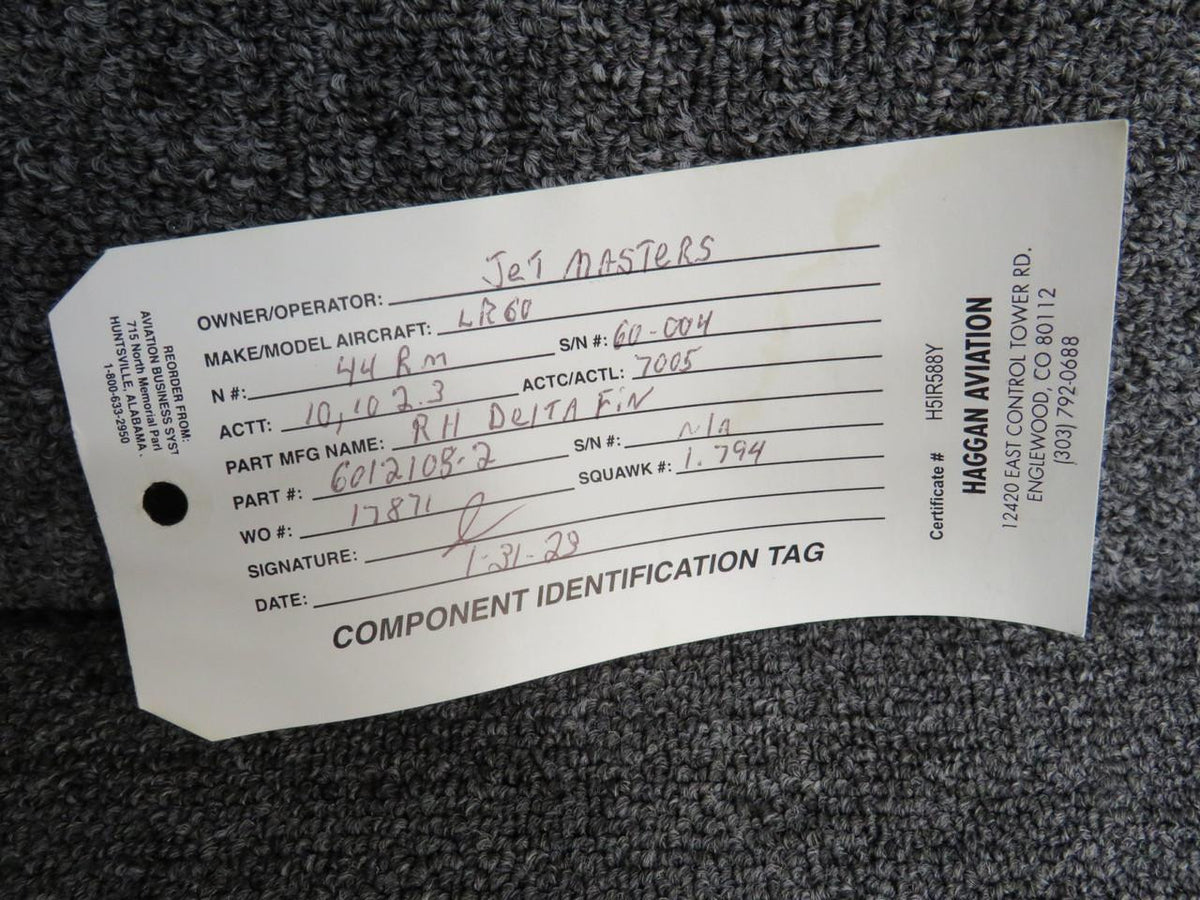 OWNER/OPERATOR: JeT MASTeRS
MAKE/MODEL AIRCRAFT: LR60
N #: 44 Rm S/N #: 60-004
ACTT: 10,102.3 ACTC/ACTL: 7005
PART MFG NAME: RH DelTA FiN
PART #: 6012108-2 S/N #: N/A
WO #: 17871 SQUAWK #: 1.794
SIGNATURE:
DATE: 1-31-23
COMPONENT IDENTIFICATION TAG
REORDER FROM:
AVIATION BUSINESS SYST
715 North Memorial Parl
HUNTSVILLE, ALABAMA
1-800-633-2950
Certificate # H5IR588Y
HAGGAN AVIATION
12420 EAST CONTROL TOWER RD.
ENGLEWOOD, CO 80112
(303) 792-0688